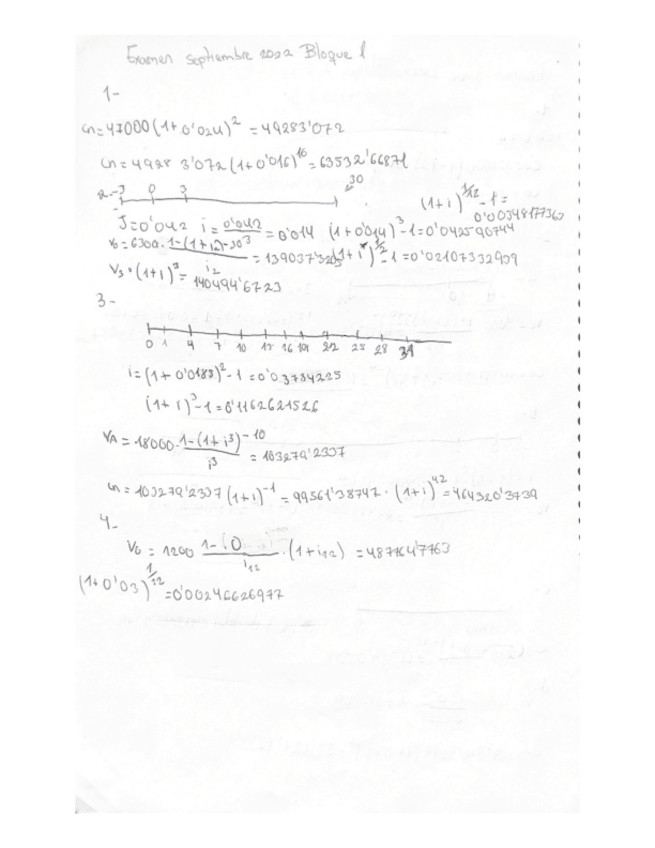 Examen septiembre 2022 Bloque 1
1-
Cn=47000(1+0'024)^2 = 49283'072
Cn = 4928 3'072(1+0'016)^16 = 63532'66871
30
2.-3 0 3
(1+i)^1/12 -1=
0'00348177363
J=0'042 i = 0'042/3 = 0'014 (1+0'014)^3 -1=0'042590744
V0=6300. 1-(1+i2)-30^3 / i2 = 139037'5205 (1+i)^1/2 -1=0'02107332939
V3 · (1+i)^3 = 140494'6723
3-
0 1 4 7 10 13 16 19 22 25 28 31
i=(1+0'0185)^2 -1 =0'03734225
(1+i)^3 -1=0'1162621526
VA = 18000. 1-(1+i^3)^-10 / i^3 = 103279'2337
Cn= 103279'2337(1+i)^-1 = 99561'38747. (1+i)^42 =464320'3739
4-
V0 = 1200 1-(0 / i12 .(1+i12) =487764'7763
(1+0'03)^1/12 =0'00246626977